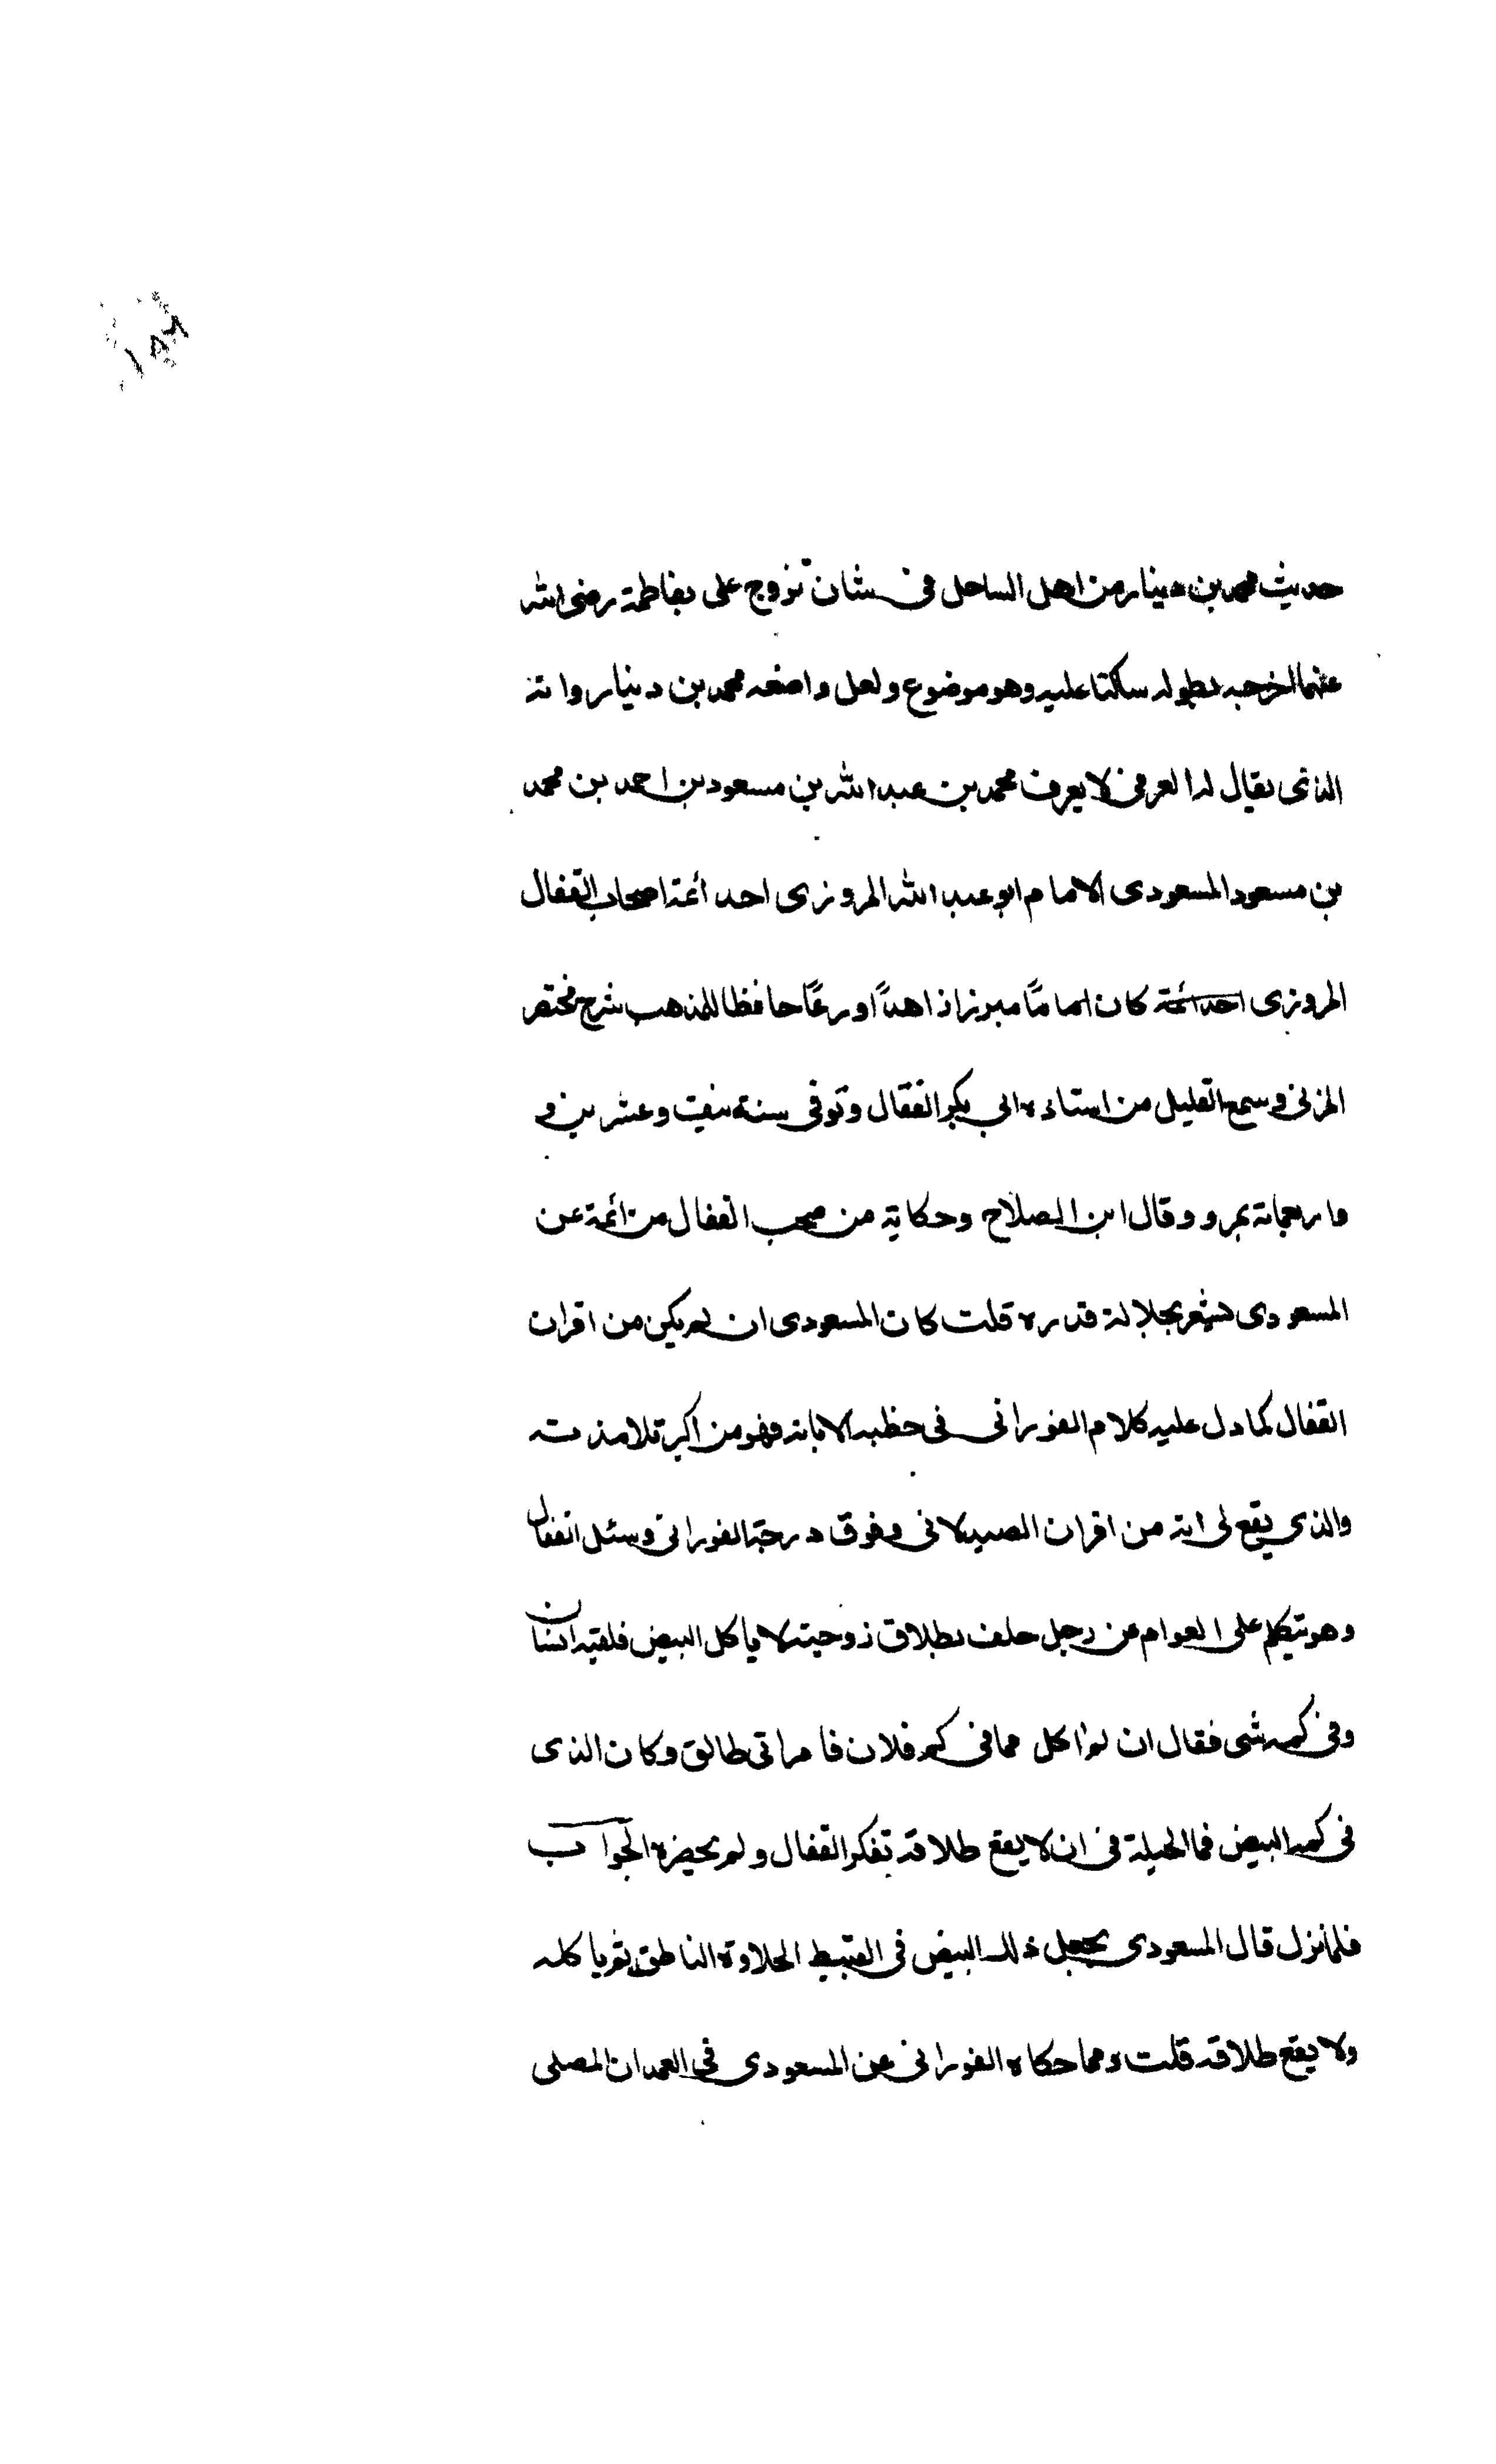 ١٨٦
حديث محمد بن دينار من اهل الساحل فى شان تزوج على بفاطمة رضى الله
عنهما اخرجه بطوله ساكتا عليه وهو موضوع ولعل واضعه محمد بن دينار وانه
الذى يقال له العرفى لا يعرف محمد بن عبد الله بن مسعود بن احمد بن محمد
بن مسعود المسعودى الامام ابو عبد الله المروزى احد أئمة اصحاب القفال
المروزى احد ائمة كان اماماً مبرزا زاهداً ورعاً حافظا للمذهب شرح مختصر
المزنى وسمع القليل من استاذه ابى بكر القفال وتوفى سنة نيف وعشرين و
واربعمائة بمرو وقال ابن الصلاح وحكاية من صحب القفال من ائمة عن
المسعودى تشعر بجلالة قدره قلت كان المسعودى ان لم يكن من اقران
القفال كما دل عليه كلام الفورانى فى خطبه الابانه فهو من اكبر تلامذته
والذى يقع لى انه من اقران الصيدلانى وفوق درجة الفورانى وسئل القفال
وهو يتكلم على العوام عن رجل حلف بطلاق زوجته لا ياكل البيض فلقيه انسان
وفى كمه شى فقال ان لم اكل مما فى كم فلان فامراتى طالق وكان الذى
فى كمه البيض فما الحيلة فى ان لا يقع طلاقه تفكر القفال ولم يحضره الجواب
فلما نزل قال المسعودى يجعل ذلك البيض فى القبيط الحلاوة الناطق ثم ياكله
ولا يقع طلاقه قلت ومما حكاه الفورانى عن المسعودى فى العمد ان المصلى